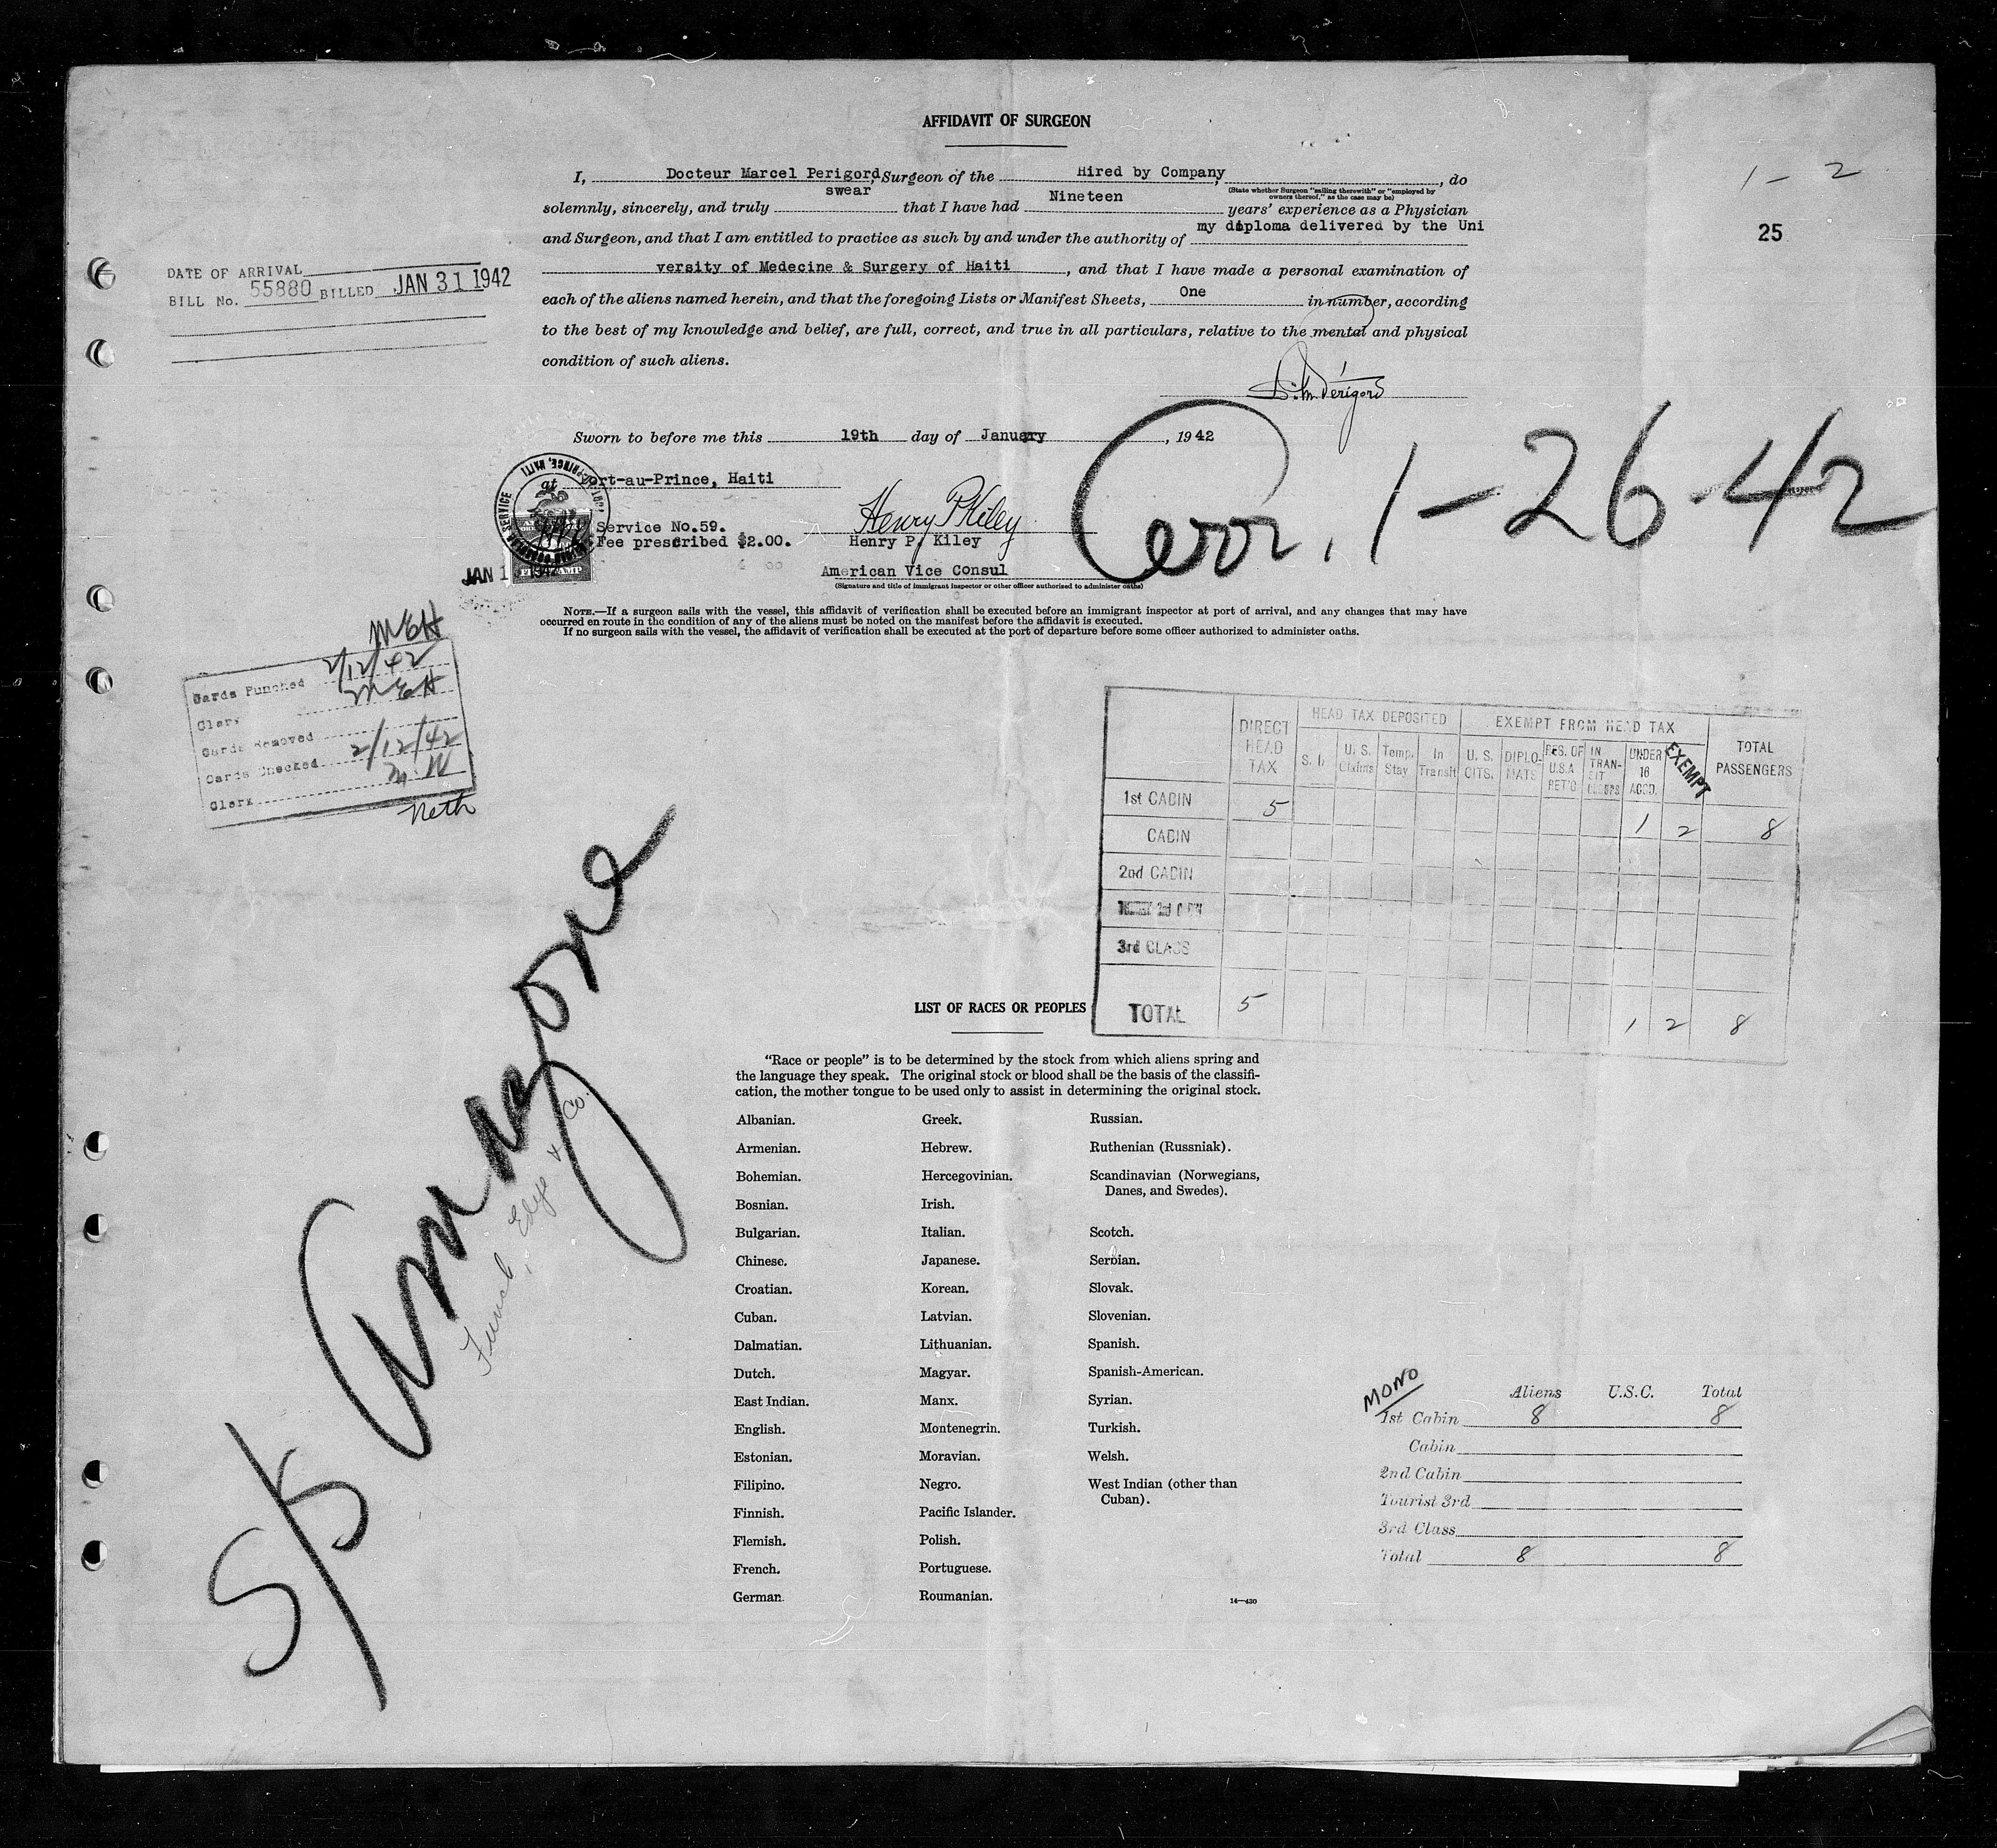 AFFIDAVIT OF SURGEON
I, Docteur Marcel Perigord, Surgeon of the Hired by Company, do
(State whether Surgeon "sailing therewith" or "employed by owners thereof," as the case may be)
solemnly, sincerely, and truly swear that I have had Nineteen years' experience as a Physician
and Surgeon, and that I am entitled to practice as such by and under the authority of my diploma delivered by the Uni
versity of Medecine & Surgery of Haiti, and that I have made a personal examination of
each of the aliens named herein, and that the foregoing Lists or Manifest Sheets, One in number, according
to the best of my knowledge and belief, are full, correct, and true in all particulars, relative to the mental and physical
condition of such aliens.
1-2
25
DATE OF ARRIVAL
BILL No. 55880 BILLED JAN 31 1942
Dr. M. Périgord
Sworn to before me this 19th day of January, 1942
at Port-au-Prince, Haiti
Service No.59.
Fee prescribed $2.00.
Henry P. Kiley
Henry P. Kiley
American Vice Consul
(Signature and title of immigrant inspector or other officer authorized to administer oaths)
JAN 1 1942
Arr. 1-26-42
NOTE.—If a surgeon sails with the vessel, this affidavit of verification shall be executed before an immigrant inspector at port of arrival, and any changes that may have
occurred en route in the condition of any of the aliens must be noted on the manifest before the affidavit is executed.
If no surgeon sails with the vessel, the affidavit of verification shall be executed at the port of departure before some officer authorized to administer oaths.
MEH
Cards Punched 2/12/42
Clerk MEH
Cards Removed
Cards Checked 2/12/42
Clerk M.W
Neth
DIRECT HEAD TAX
HEAD TAX DEPOSITED
EXEMPT FROM HEAD TAX
TOTAL PASSENGERS
S.I. U.S. Claims Temp. Stay In Transit U.S. CITS. DIPLOMATS RES. OF U.S.A RET'G IN TRANSIT UNDER 16 ACCD. EXEMPT
1st CABIN 5 1 2 8
CABIN
2nd CABIN
3rd CLASS
TOTAL 5 1 2 8
S/S Amazone
Funch, Edye & Co.
LIST OF RACES OR PEOPLES
"Race or people" is to be determined by the stock from which aliens spring and
the language they speak. The original stock or blood shall be the basis of the classifi-
cation, the mother tongue to be used only to assist in determining the original stock.
Albanian.
Armenian.
Bohemian.
Bosnian.
Bulgarian.
Chinese.
Croatian.
Cuban.
Dalmatian.
Dutch.
East Indian.
English.
Estonian.
Filipino.
Finnish.
Flemish.
French.
German.
Greek.
Hebrew.
Hercegovinian.
Irish.
Italian.
Japanese.
Korean.
Latvian.
Lithuanian.
Magyar.
Manx.
Montenegrin.
Moravian.
Negro.
Pacific Islander.
Polish.
Portuguese.
Roumanian.
Russian.
Ruthenian (Russniak).
Scandinavian (Norwegians,
Danes, and Swedes).
Scotch.
Serbian.
Slovak.
Slovenian.
Spanish.
Spanish-American.
Syrian.
Turkish.
Welsh.
West Indian (other than
Cuban).
14—430
MONO
Aliens U.S.C. Total
1st Cabin 8 8
Cabin
2nd Cabin
Tourist 3rd
3rd Class
Total 8 8